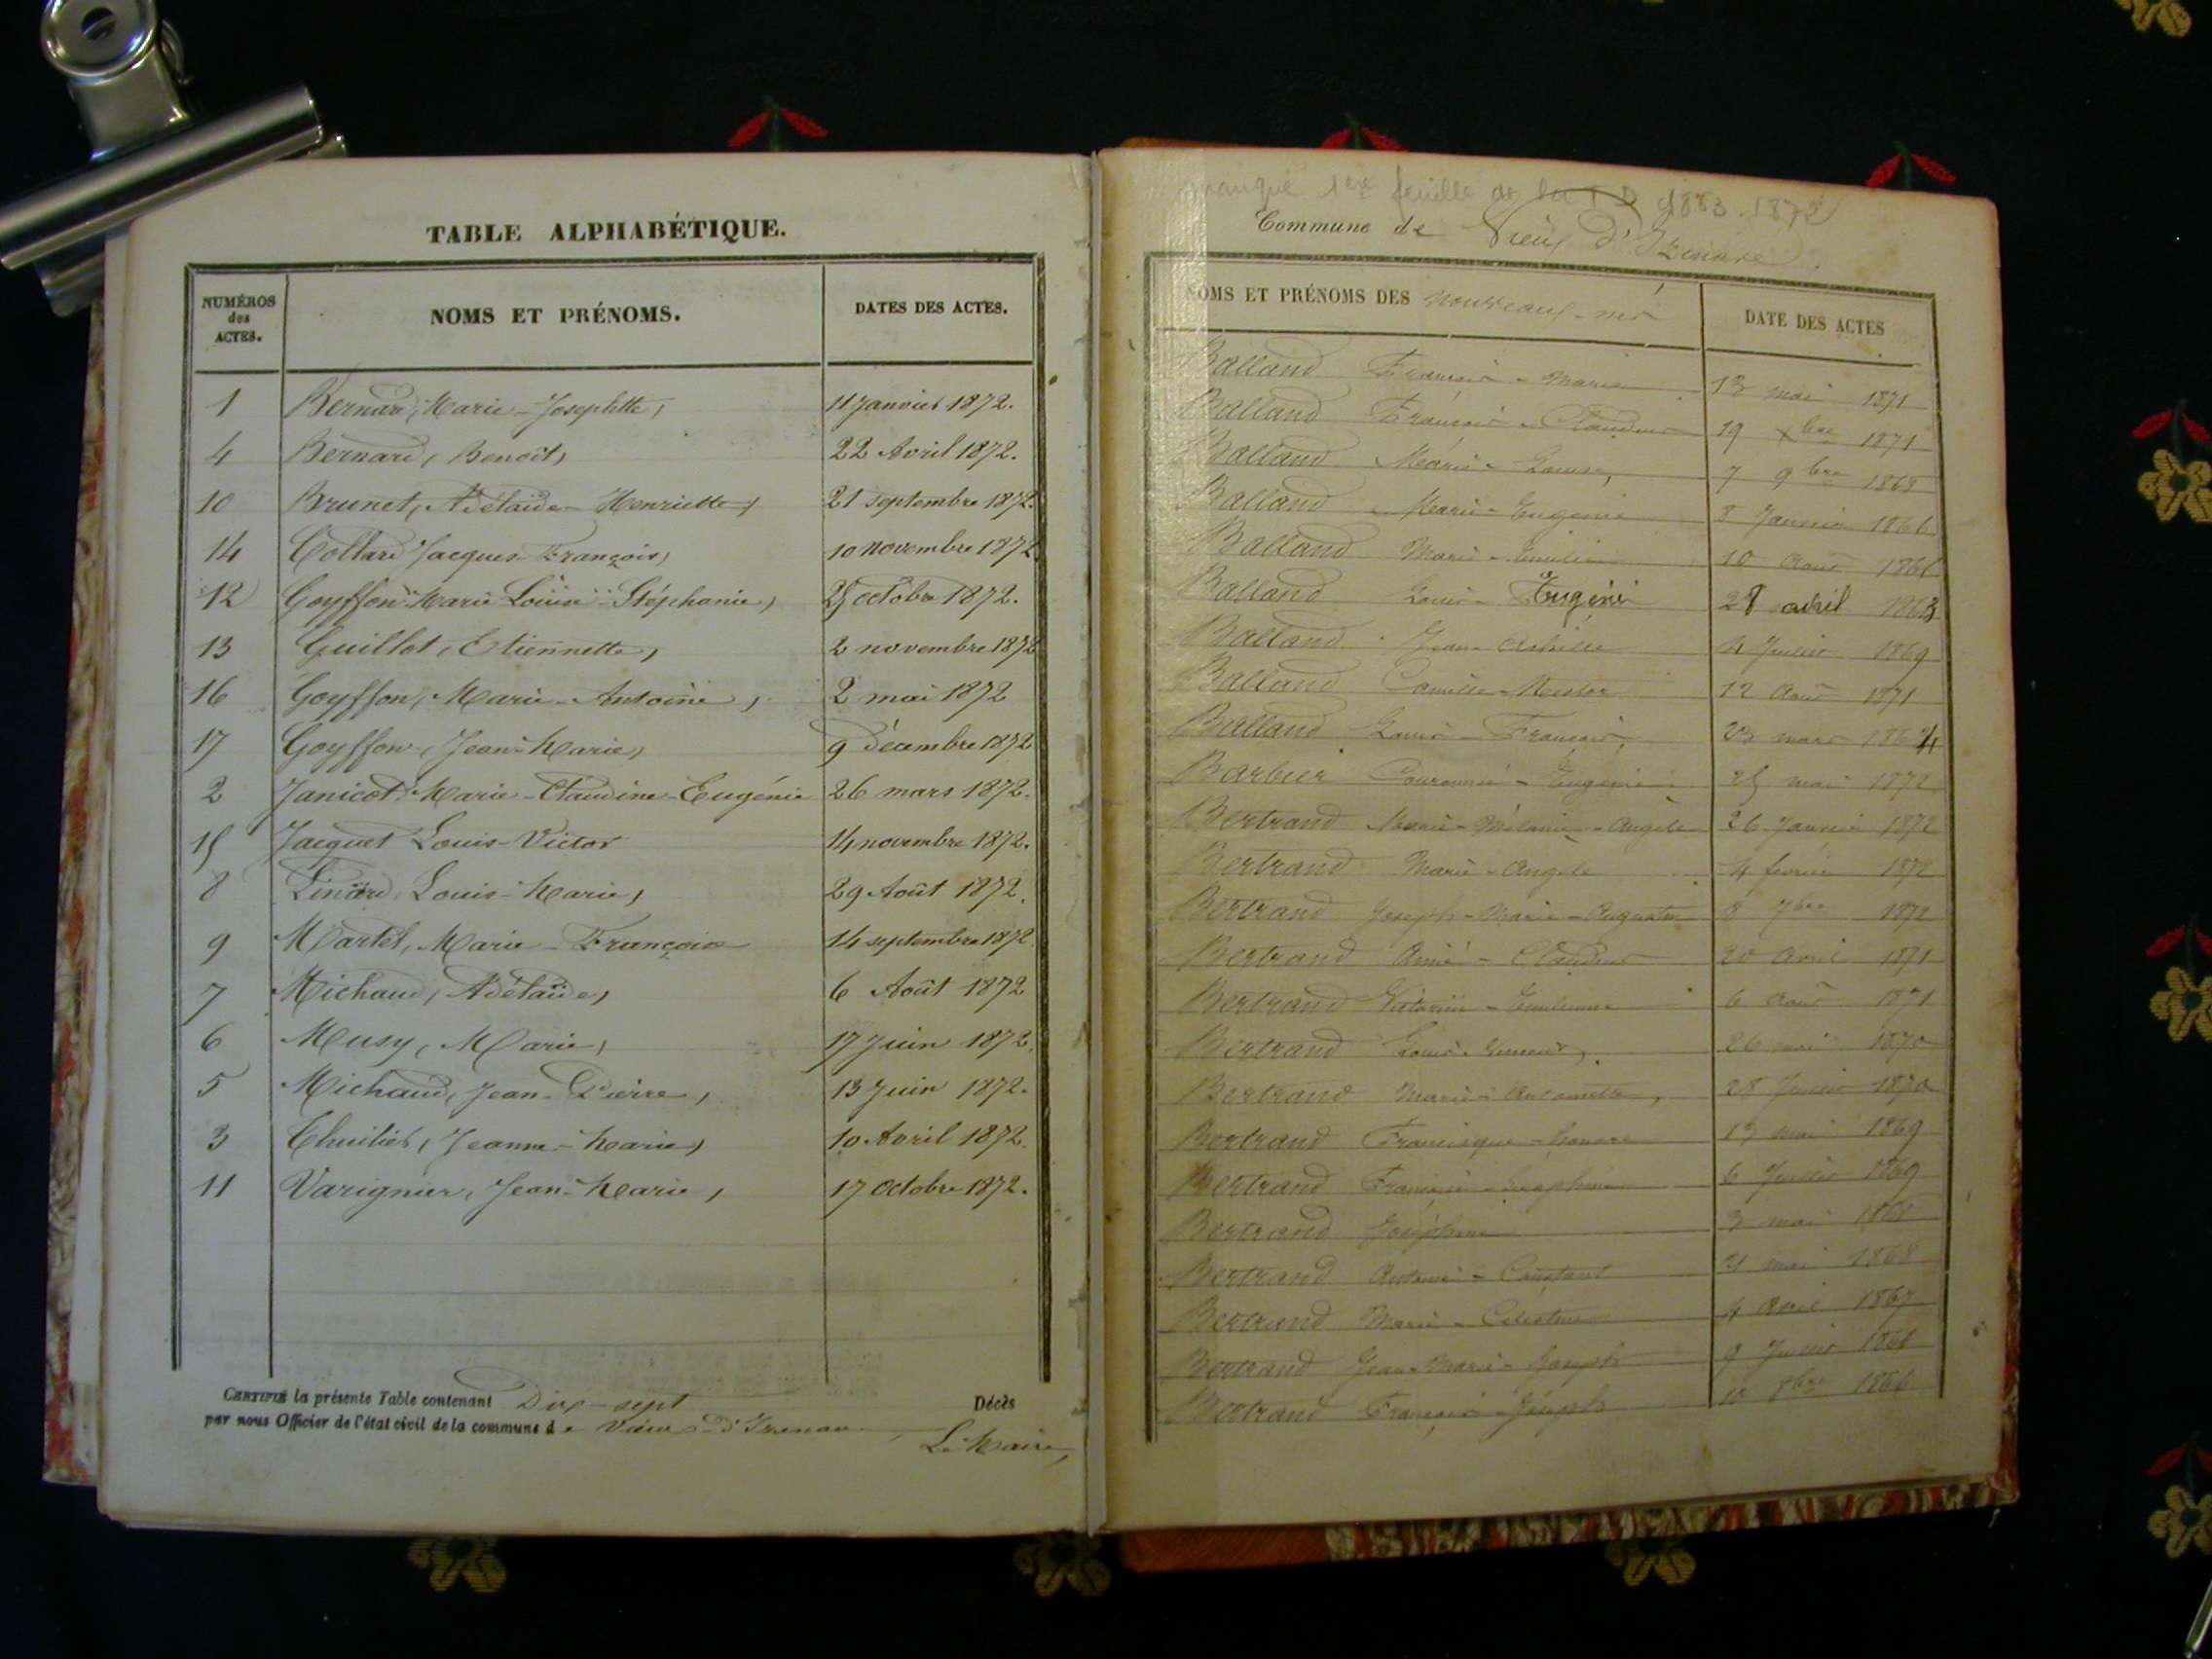 TABLE ALPHABÉTIQUE.
NUMÉROS des ACTES. NOMS ET PRÉNOMS. DATES DES ACTES.
1 Bernard, Marie-Josephtte, 11 Janvier 1872.
4 Bernard, Benoit, 22 Avril 1872.
10 Brunet, Adélaïde-Henriette, 21 septembre 1872.
14 Collard Jacques-François, 10 novembre 1872
12 Goyffon Marie Louise Stéphanie, 25 octobre 1872.
13 Guillot, Etiennette, 2 novembre 1872
16 Goyffon, Marie-Antoine, 2 mai 1872
17 Goyffon, Jean-Marie, 9 décembre 1872
2 Janicot Marie-Claudine-Eugénie 26 mars 1872.
15 Jacquet Louis-Victor 14 novembre 1872.
8 Linard, Louis-Marie, 29 Août 1872.
9 Martel, Marie-Françoise 14 septembre 1872.
7 Michaud, Adélaïde, 6 Août 1872
6 Musy, Marie, 17 Juin 1872.
5 Michaud, Jean-Pierre, 13 Juin 1872.
3 Thuilier, Jeanne-Marie, 10 Avril 1872.
11 Varignier, Jean-Marie, 17 Octobre 1872.
CERTIFIÉ la présente Table contenant Dix-sept Décès
par nous Officier de l'état civil de la commune de Vieux-d'Izenave
Le Maire,
manque 1ere feuille de la T D 1863.1872
Commune de Vieux d'Izenave
NOMS ET PRÉNOMS DES Nouveaux-nés DATE DES ACTES
Balland François-Marie 13 mai 1871
Balland François-Claudius 19 Xbre 1871
Balland Marie-Louise, 7 9bre 1865
Balland Marie-Eugénie 8 Janvier 1866
Balland Marie-Emilie 10 Août 1866
Balland Louis-Eugène 28 avril 1863
Balland Jean-Achille 4 Juillet 1869
Balland Camille-Nestor 12 Août 1871
Balland Louis-François, 23 mars 1864
Barbier Eugénie 25 mai 1872
Bertrand Marie-Mélanie-Angèle 26 Janvier 1872
Bertrand Marie-Angèle 4 février 1872
Bertrand Joseph-Marie-Augustin 8 7bre 1872
Bertrand Aimé-Claudius 20 avril 1871
Bertrand Victorin 6 Août 1871
Bertrand Louis 26 mai 1870
Bertrand Marie-Antoinette, 28 Juillet 1870
Bertrand Francisque-honoré 13 mai 1869
Bertrand Joséphine 6 Juillet 1869
Bertrand Joséphine 3 mai 1868
Bertrand Antoine-Constant 21 mai 1868
Bertrand Marie-Célestine 4 Avril 1867
Bertrand Jean-Marie-Joseph 9 Juillet 1866
Bertrand François-Joseph 10 8bre 1866